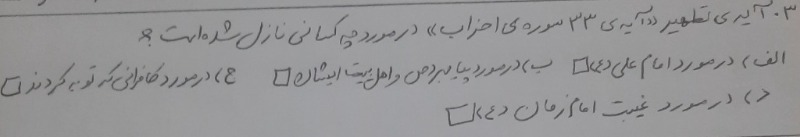 ۳۰. آیه ی تطهیر ((آیه ی ۳۳ سوره ی احزاب)) در مورد چه کسانی نازل شده است؟
الف) در مورد امام علی (ع) □ ب) در مورد پیامبر (ص) و اهل بیت ایشان □ ج) در مورد کافرانی که توبه کردند □
د) در مورد غیبت امام زمان (ع) □